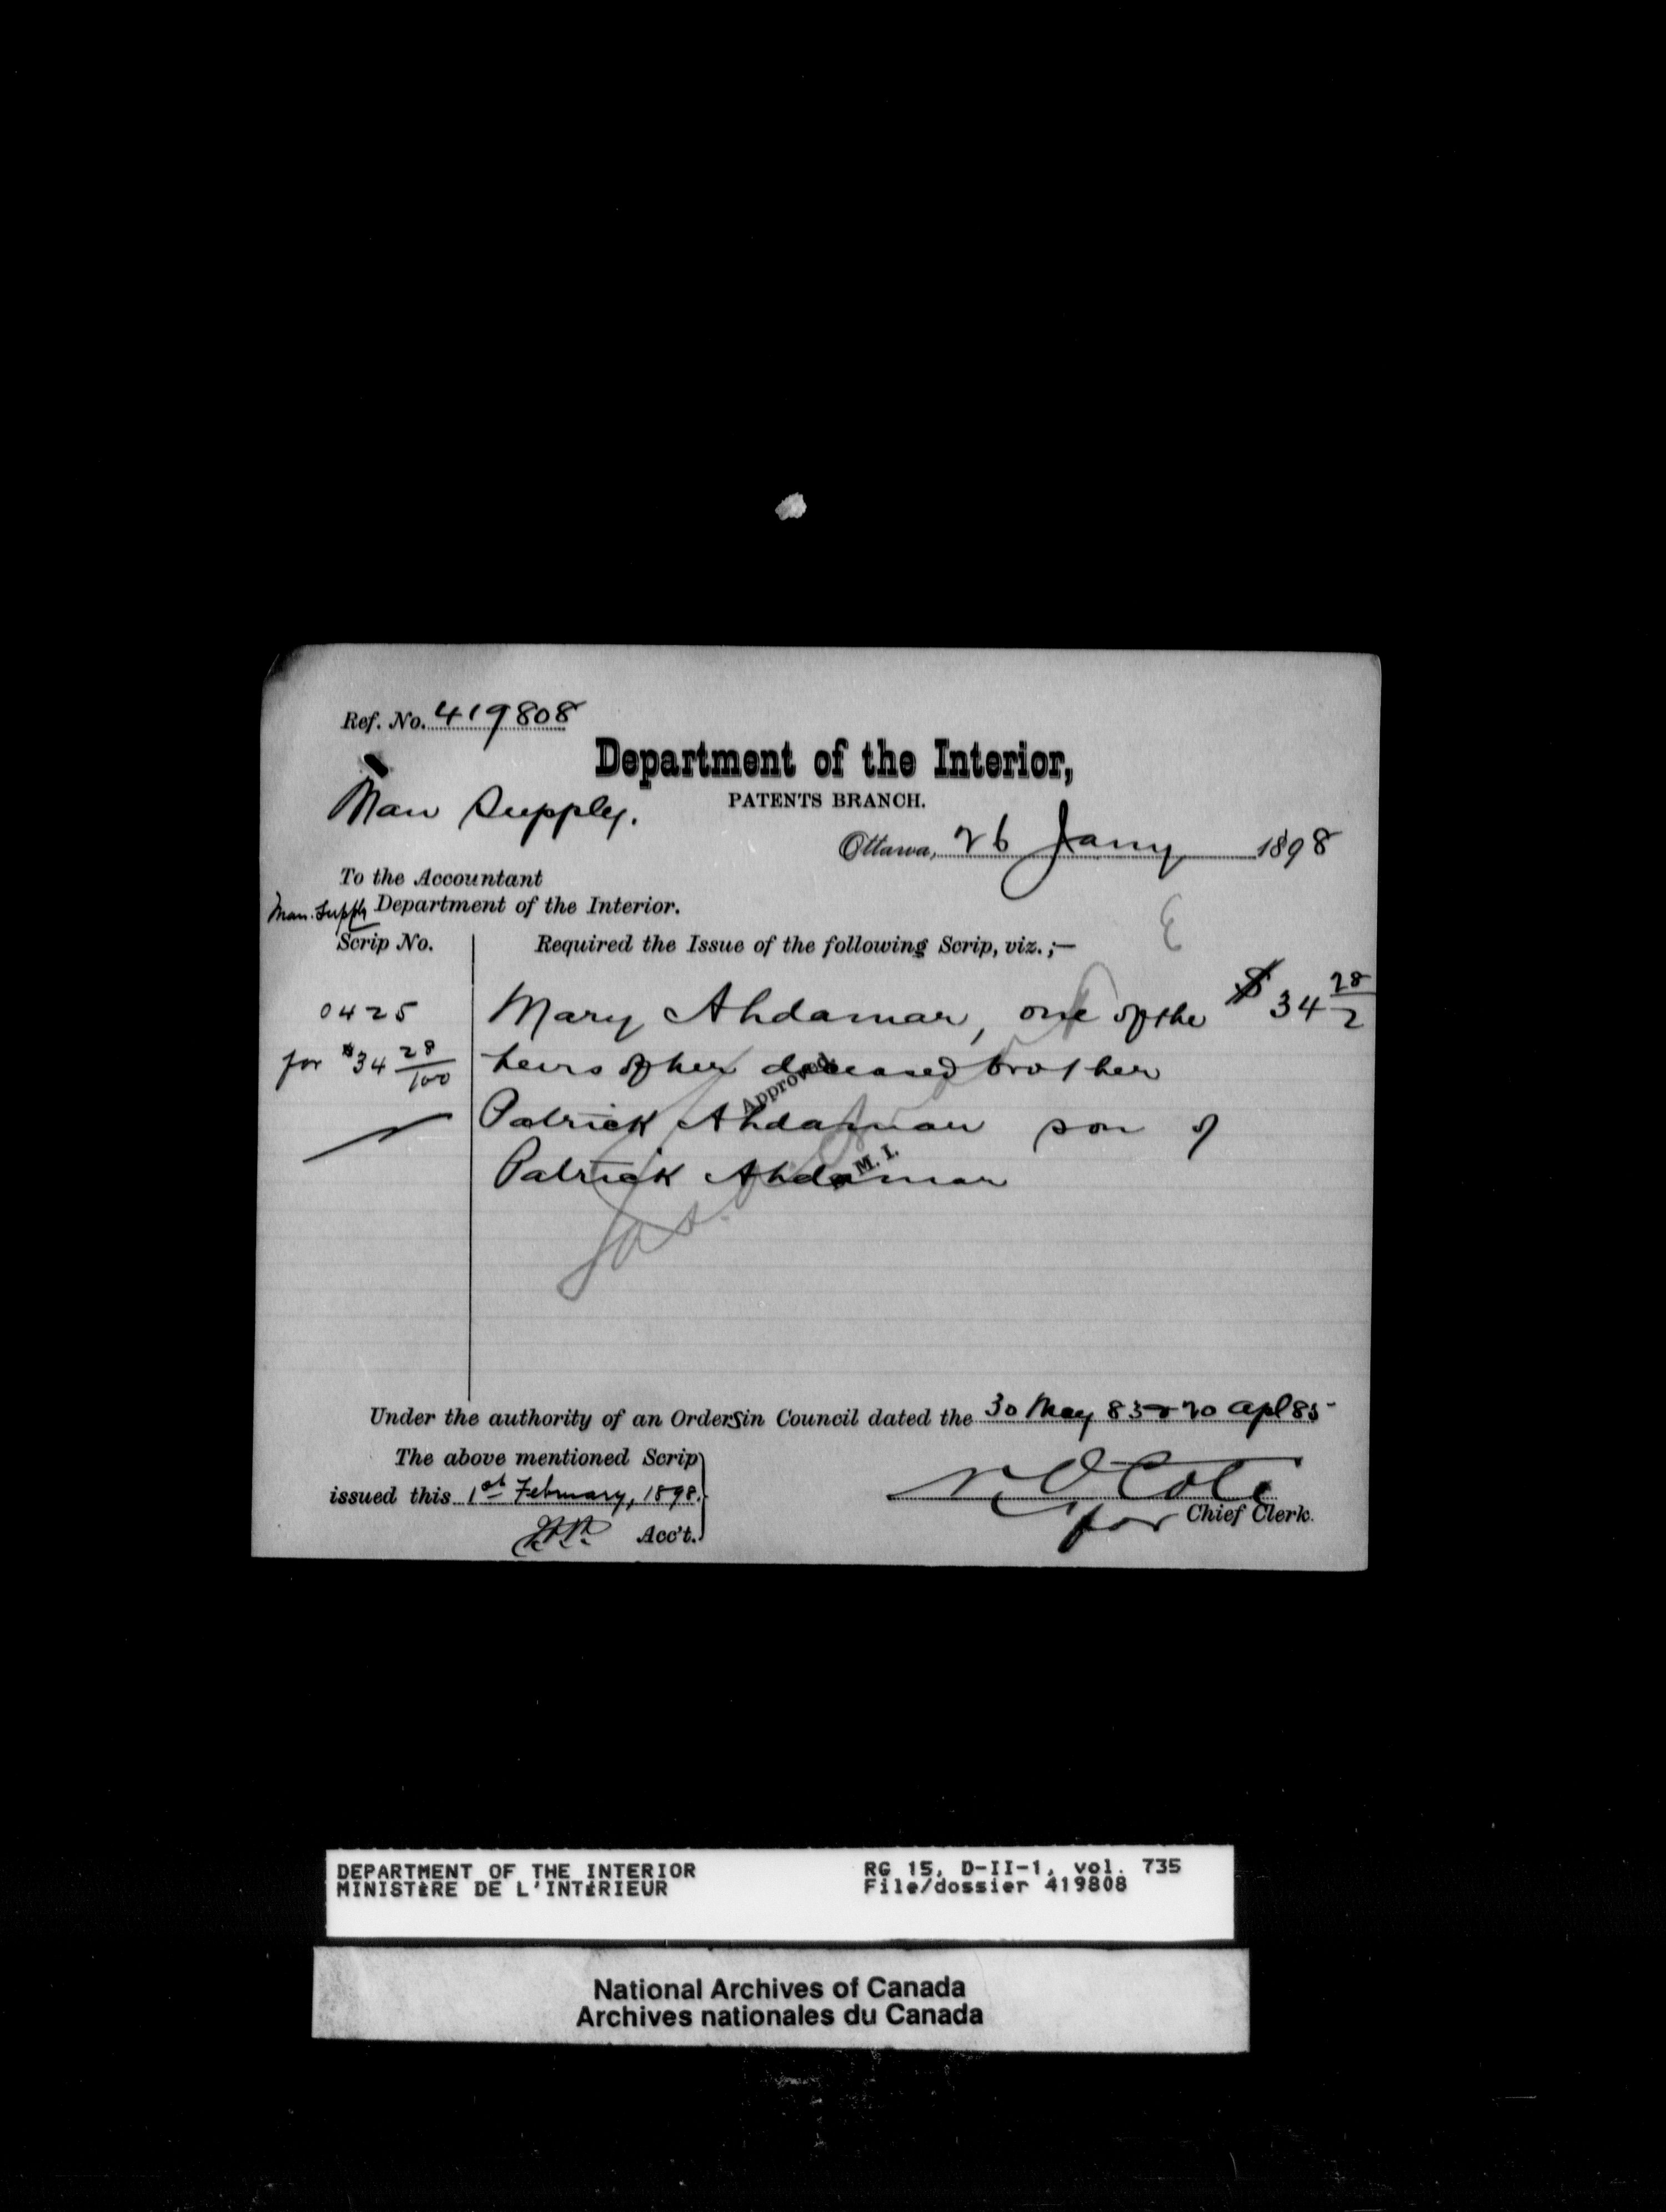 Ref. No. 419808
Department of the Interior,
PATENTS BRANCH.
Man Supply.
Ottawa, 26 Jany 1898
To the Accountant
Man. Supply Department of the Interior.
Scrip No.
Required the Issue of the following Scrip, viz.;—
0425
Mary Ahdamar, one of the $34 28/
for $34 28/100
heirs of her deceased brother
Approved,
Patrick Ahdamar son of
M. I.
Patrick Ahdamar
Under the authority of an Orders in Council dated the 30 May 85 & 20 Apl 85
The above mentioned Scrip
issued this 1st February, 1898.
Acc't.
N O Coté
for Chief Clerk.
DEPARTMENT OF THE INTERIOR
MINISTÈRE DE L'INTÉRIEUR
RG 15, D-II-1, vol. 735
File/dossier 419808
National Archives of Canada
Archives nationales du Canada